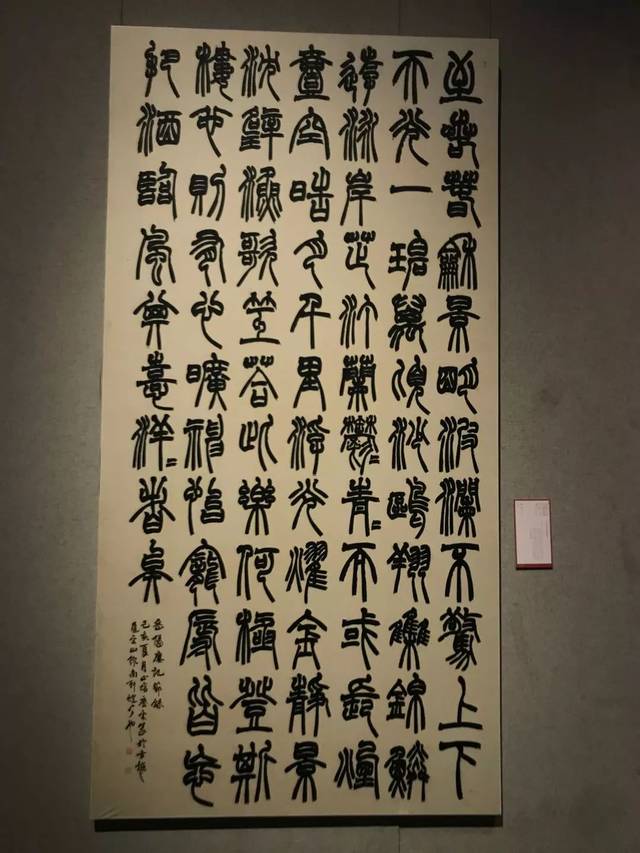 至若春龢景明波瀾不驚上下
天光一碧萬頃沙鷗翔集錦鱗
游泳岸芷汀蘭鬱=青=而或長煙
壹空皓月千里浮光耀金靜景
沈璧漁歌互答此樂何極登斯
樓也則有心曠神怡寵辱皆忘
把酒臨風其喜洋=者矣
岳陽樓記節錄
己亥夏月